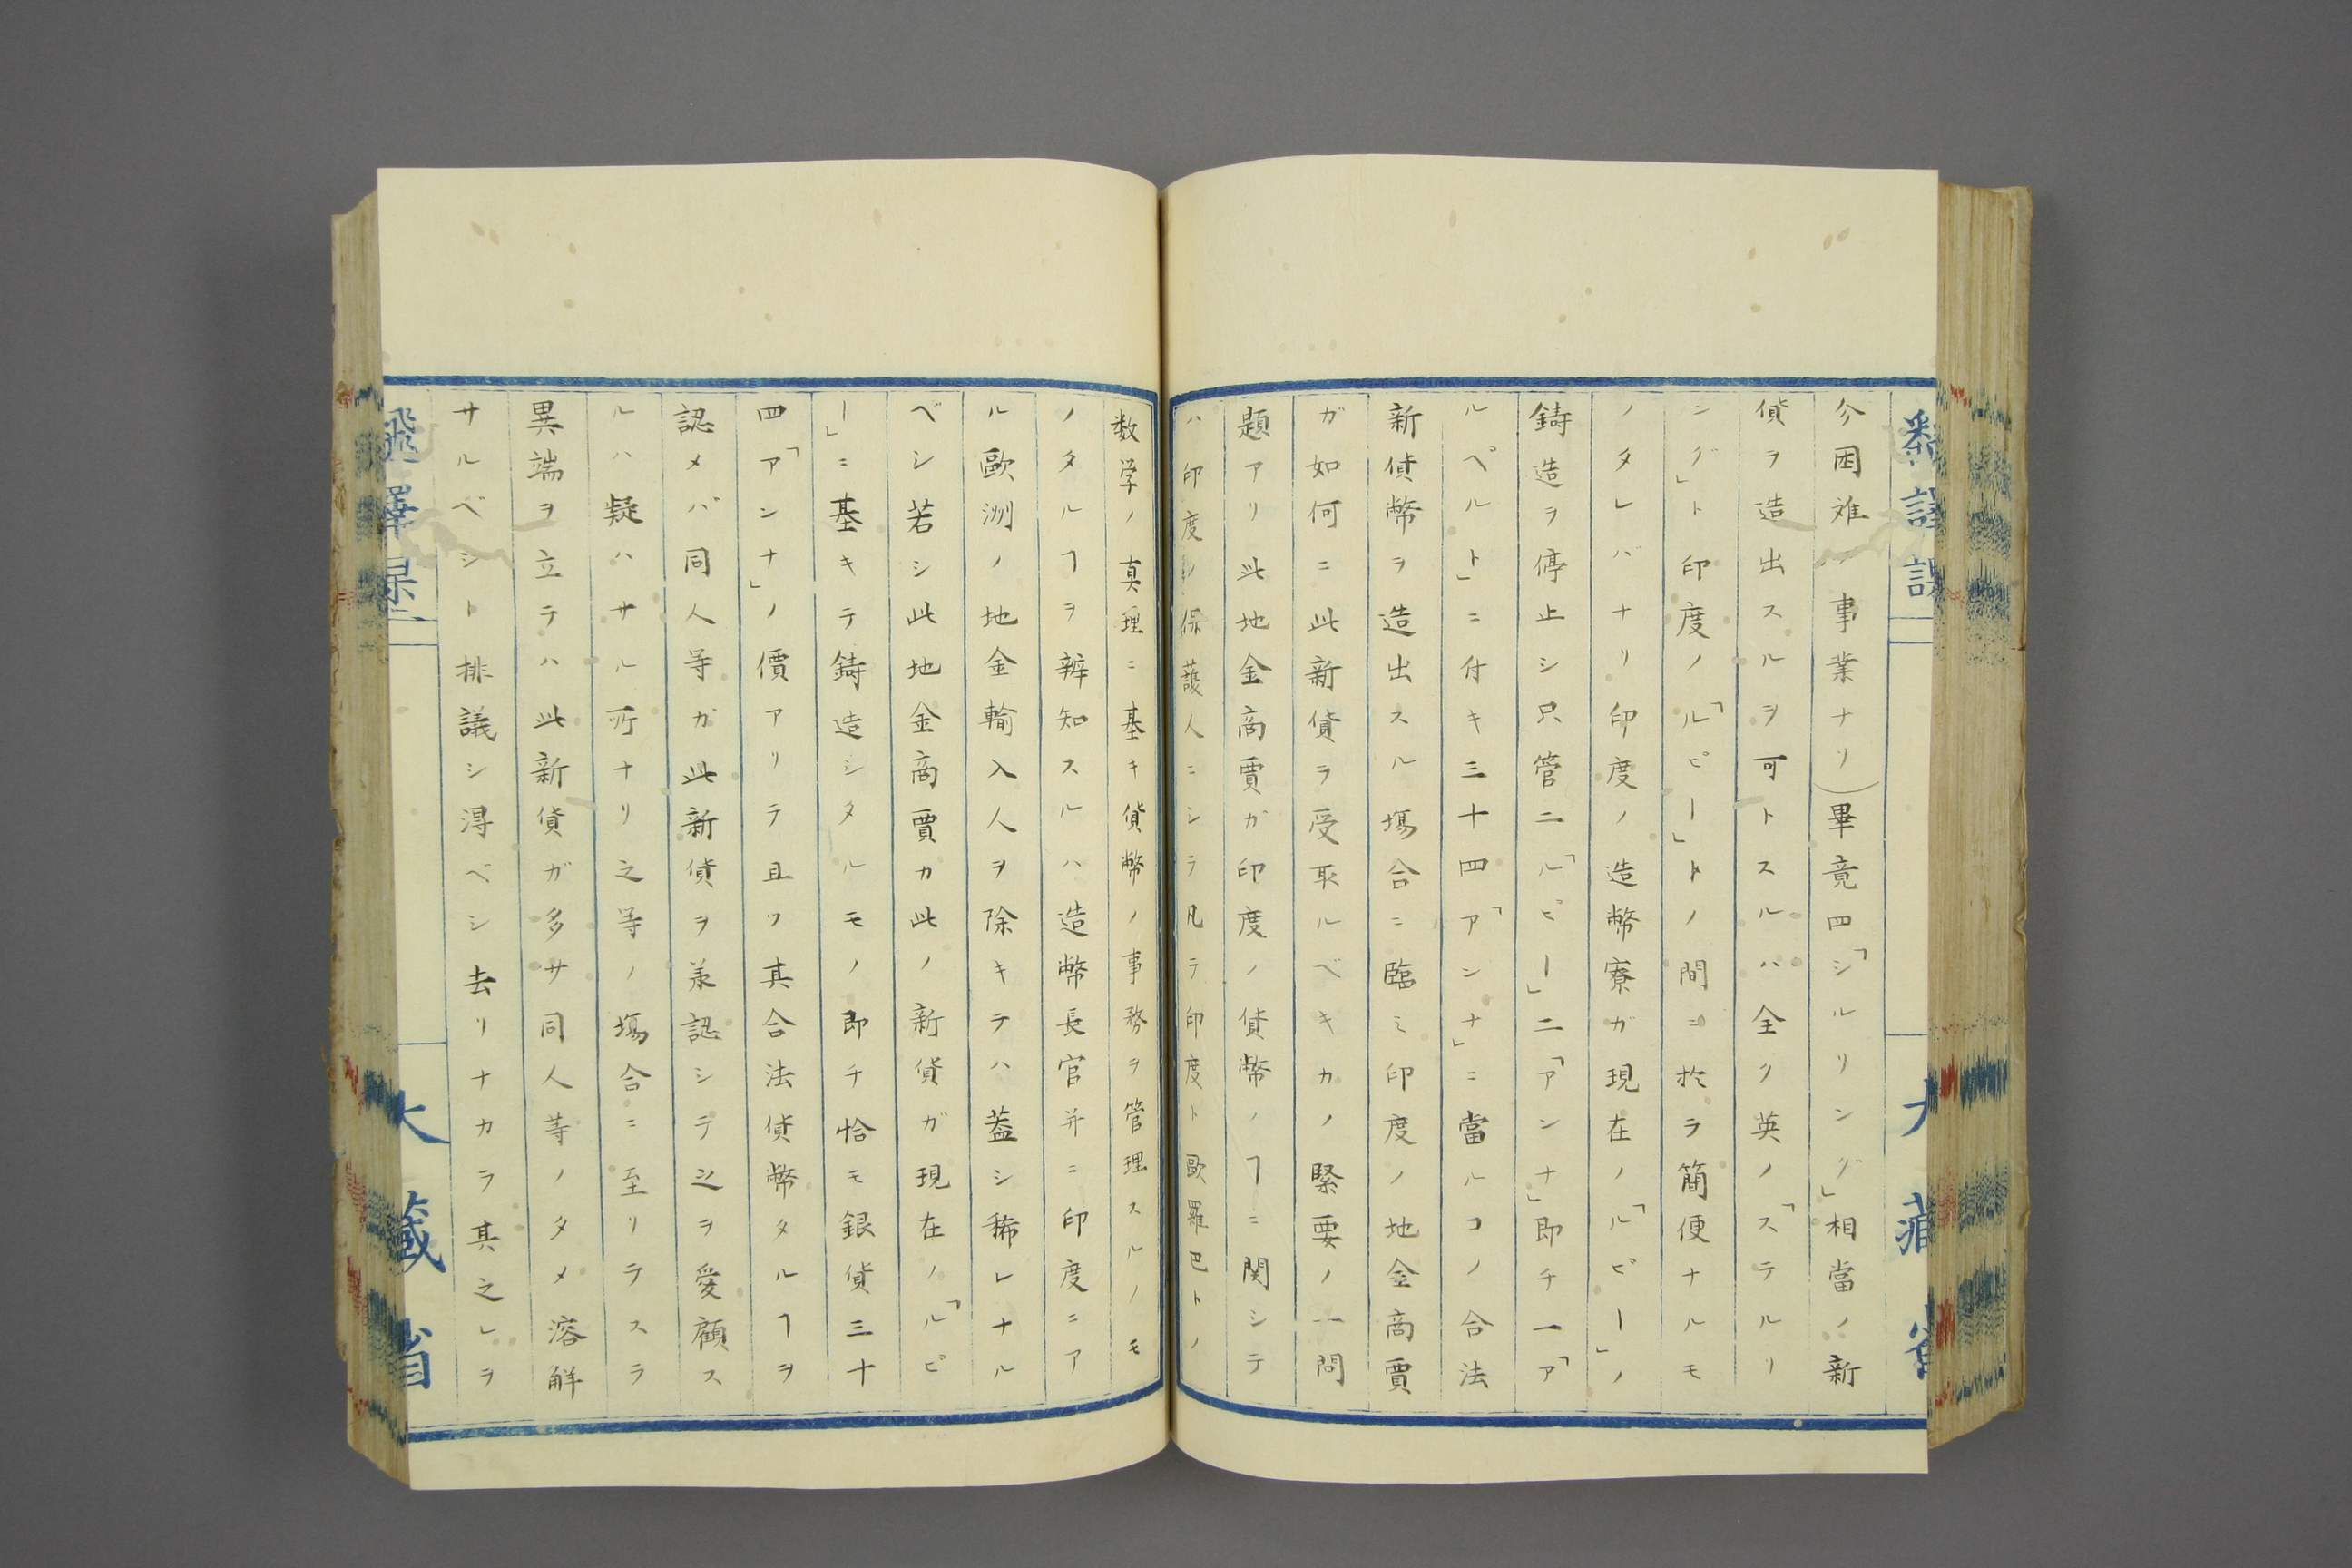 分困难ノ事業ナリ)畢竟四「シルリング」相當ノ新
貨ヲ造出スルヲ可トスルハ全ク英ノ「ステルリ
ング」ト印度ノ「ルピー」トノ間ニ於ラ簡便ナルモ
ノタレバナリ印度ノ造幣寮ガ現在ノ「ルピー」ノ
鋳造ヲ停止シ只管二「ルピー」二「アンナ」即チ一「ア
ルペルト」ニ付キ三十四「アンナ」ニ當ルコノ合法
新貨幣ヲ造出スル塲合ニ臨ミ印度ノ地金商賈
ガ如何ニ此新貨ヲ受取ルベキカノ緊要ノ一問
題アリ此地金商賈ガ印度ノ貨幣ノヿニ関シテ
ハ印度ノ保護人ニシラ凡ラ印度ト歐羅巴トノ
数学ノ真理ニ基キ貨幣ノ事務ヲ管理スルノモ
ノタルヿヲ辨知スルハ造幣長官并ニ印度ニア
ル歐洲ノ地金輸入人ヲ除キテハ蓋シ稀レナル
ベシ若シ此地金商賈カ此ノ新貨ガ現在ノ「ルピ
ー」ニ基キテ鋳造シタルモノ即チ恰モ銀貨三十
四「アンナ」ノ價アリテ且ツ其合法貨幣タルヿヲ
認メバ同人等ガ此新貨ヲ承認シテ之ヲ愛顧ス
ルハ疑ハサル所ナリ之等ノ塲合ニ至リテスラ
異端ヲ立テハ此新貨ガ多サ同人等ノタメ溶解
サルベシト排議シ淂ベシ去リナカラ其之レヲ
大藏省